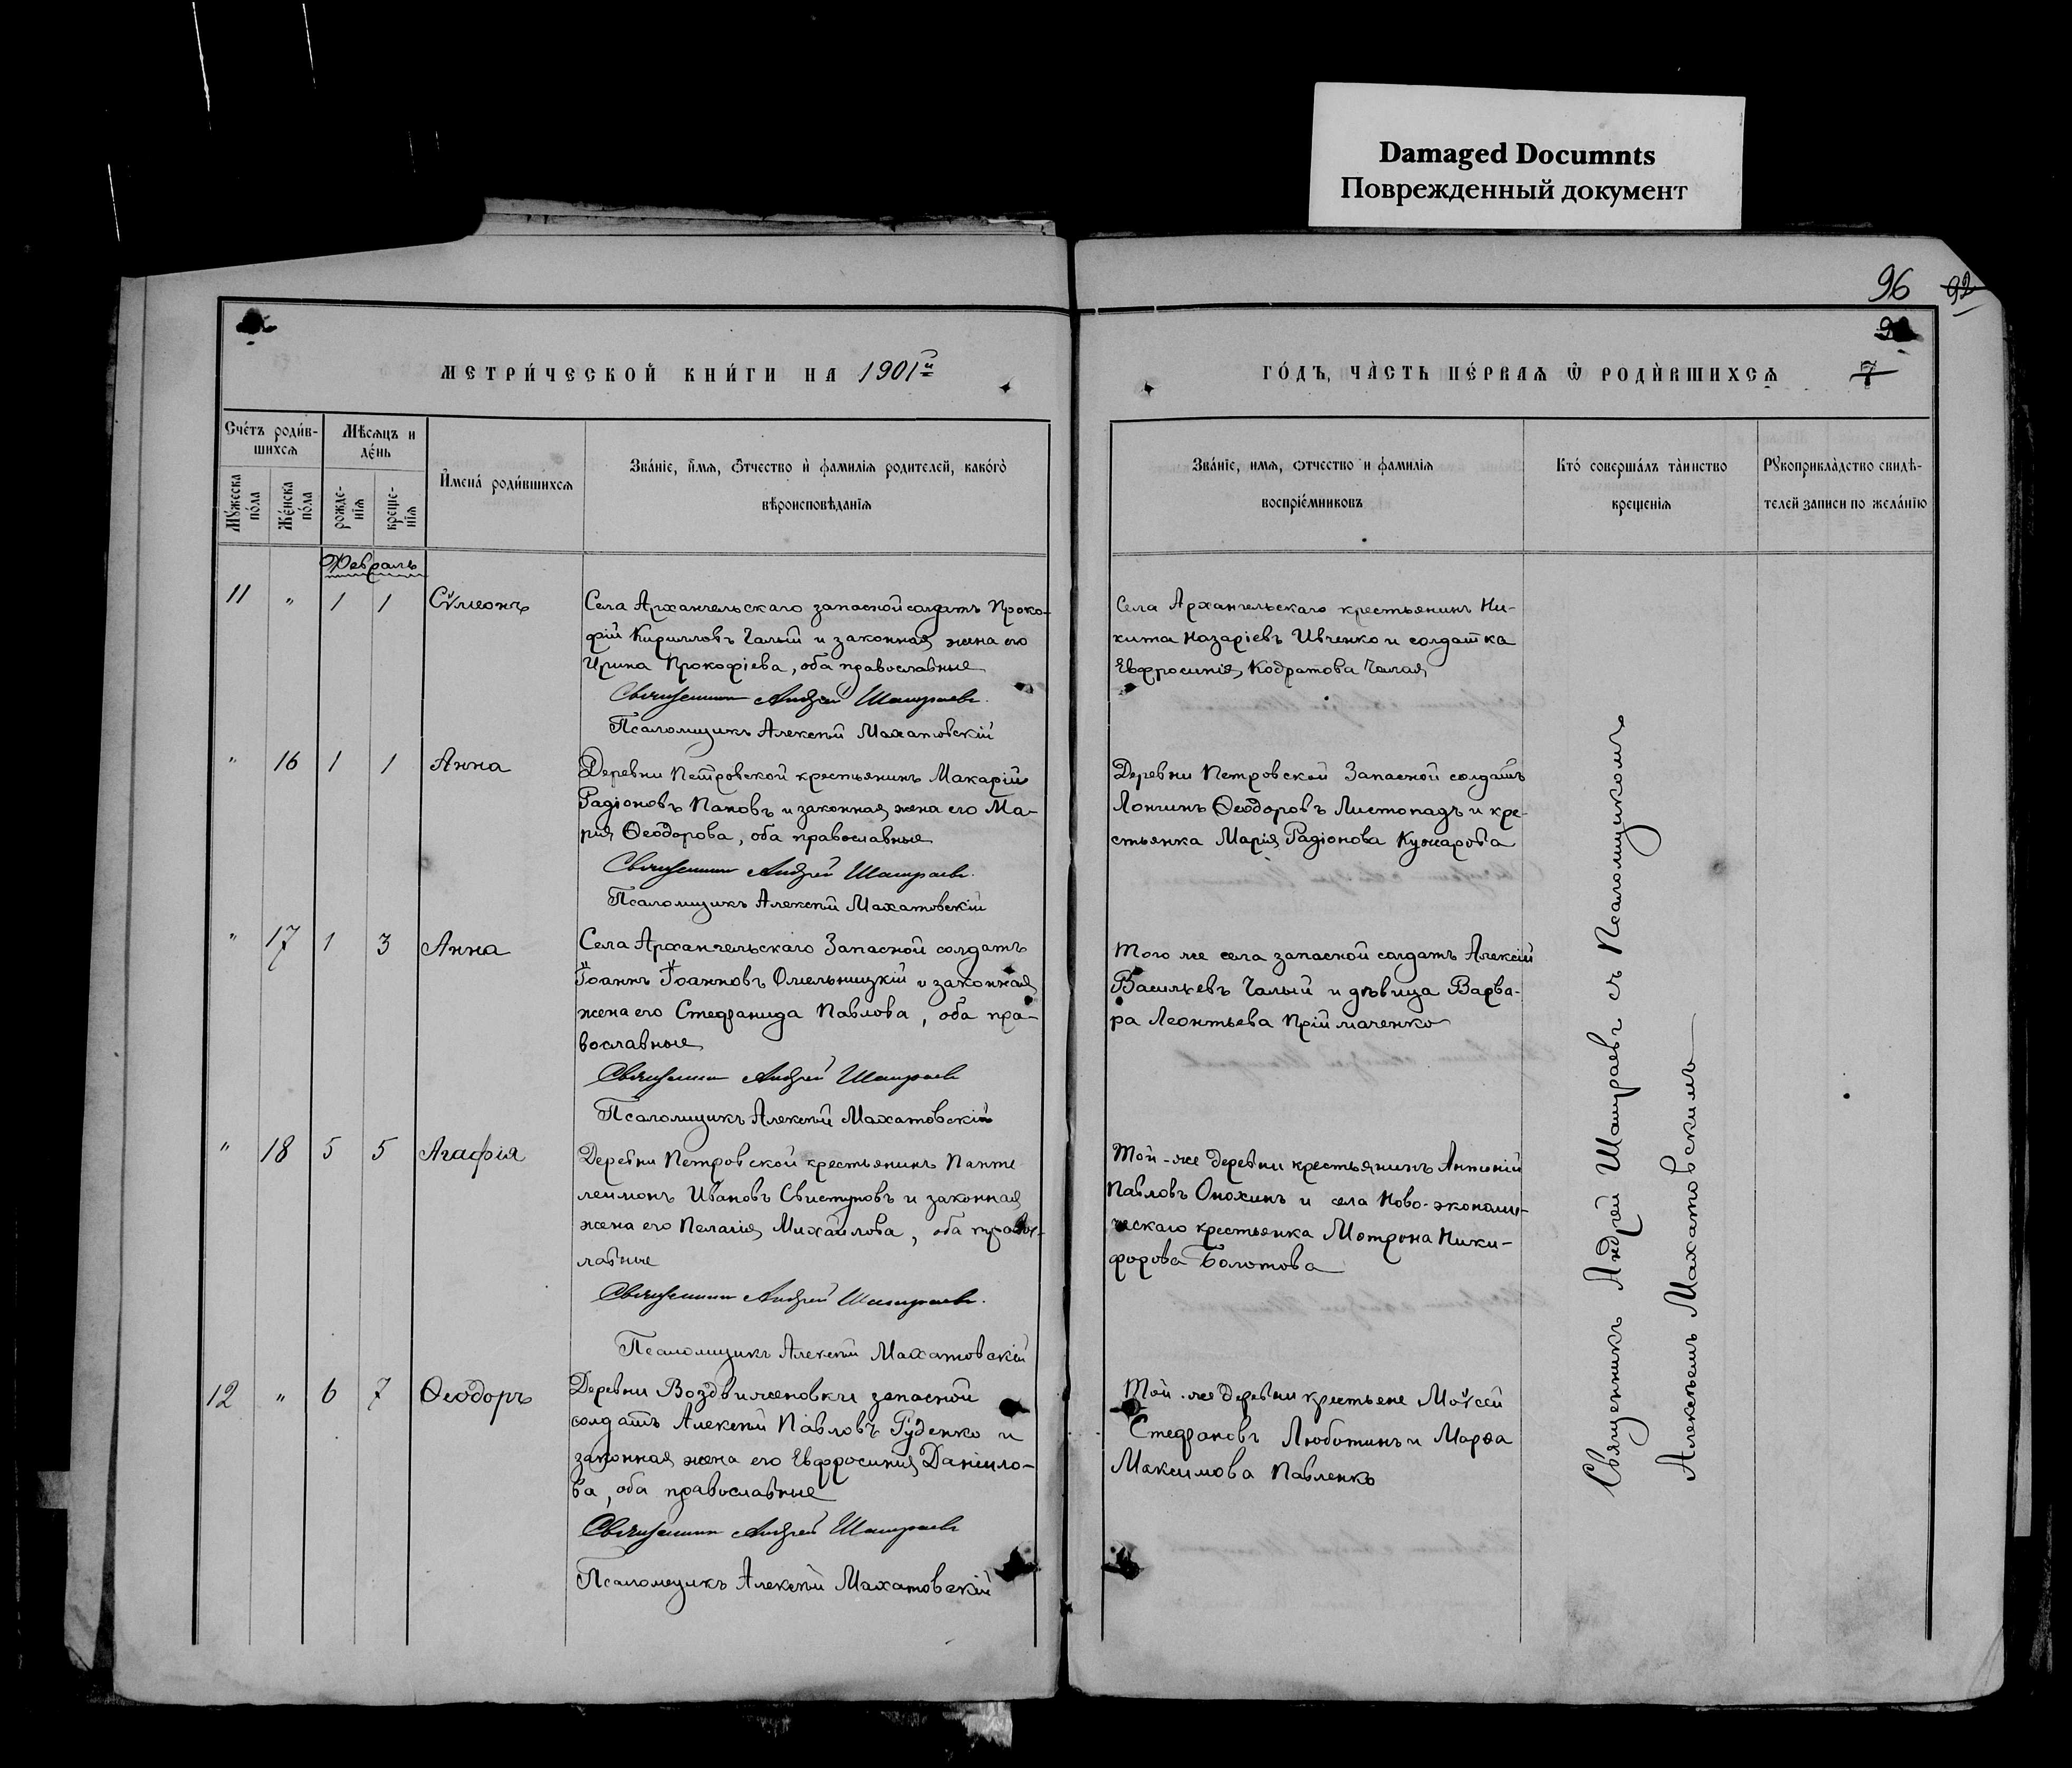 Damaged Documnts
Поврежденный документ
96 92
7
МЕТРИ́ЧЕСКОЙ КНИ́ГИ НА 1901й
ГО́ДЪ, ЧА̀СТЬ ПЕ́РВАѦ Ѿ РОДЍВШИХСѦ
Сче́тъ роди́в-
шихсѧ
Мꙋ́жеска по́ла
Же́нска по́ла
Мѣ́сѧцъ и
де́нь
рожде-
нїѧ
креще-
нїѧ
И҆мена́ роди́вшихсѧ
Зва́нїе, и҆́мѧ, ѻ҆́тчество и҆ фамилїѧ родителей, како́гѡ
вѣроисповѣданїѧ
Зва́нїе, имѧ, ѻтчество и фамилїѧ
воспрїе́мниковъ
Кто́ соверша́лъ та̀инство
крещенїѧ
Рꙋкоприкла̀дство свидѣ-
телей записи по жела́нїю
Февраль
11 " 1 1 Сѵмеонъ
Села Архангельскаго запасной солдатъ Проко-
фій Кирилловъ Чалый и законная жена его
Ирина Прокофіева, оба православные
Священник Андрей Шашраевъ.
Псаломщикъ Алексѣй Махатовскій
Села Архангельскаго крестьянинъ Ни-
кита Назаріевъ Ивченко и солдатка
Евфросинія Кодратова Чалая
" 16 1 1 Анна
Деревни Петровской крестьянинъ Макарій
Радіоновъ Пановъ и законная жена его Ма-
рія Ѳеодорова, оба православные
Священник Андрей Шашраевъ.
Псаломщикъ Алексѣй Махатовскій
Деревни Петровской Запасной солдатъ
Лонгинъ Ѳеодоровъ Листопадъ и кре-
стьянка Марія Радіонова Кужарова
" 17 1 3 Анна
Села Архангельскаго Запасной солдатъ
Іоаннъ Іоанновъ Омельницкій и законная
жена его Стефанида Павлова, оба пра-
вославные
Священник Андрей Шашраевъ
Псаломщикъ Алексѣй Махатовскій
Того же села запасной солдатъ Алексій
Васильевъ Чалый и дѣвица Варва-
ра Леонтьева Пріймаченко
" 18 5 5 Агафія
Деревни Петровской крестьянинъ Панте
леимонъ Ивановъ Свистуновъ и законная
жена его Пелагія Михайлова, оба правос-
лавные
Священник Андрей Шашраевъ.
Псаломщикъ Алексѣй Махатовскій
Той-же деревни крестьянинъ Антоній
Павловъ Онохинъ и села Ново-экономи-
ческаго крестьянка Мотрона Ники-
форова Болотова
12 " 6 7 Ѳеодоръ
Деревни Воздвиженовки запасной
солдатъ Алексѣй Павловъ Руденко и
законная жена его Евфросинія Даніило-
ва, оба православные
Священник Андрей Шашраевъ
Псаломщикъ Алексѣй Махатовскій
Той-же деревни крестьяне Моѵсей
Стефановъ Люботинъ и Марѳа
Максимова Павленко
Священникъ Андрей Шашраевъ съ Псаломщикомъ
Алексѣемъ Махатовскимъ